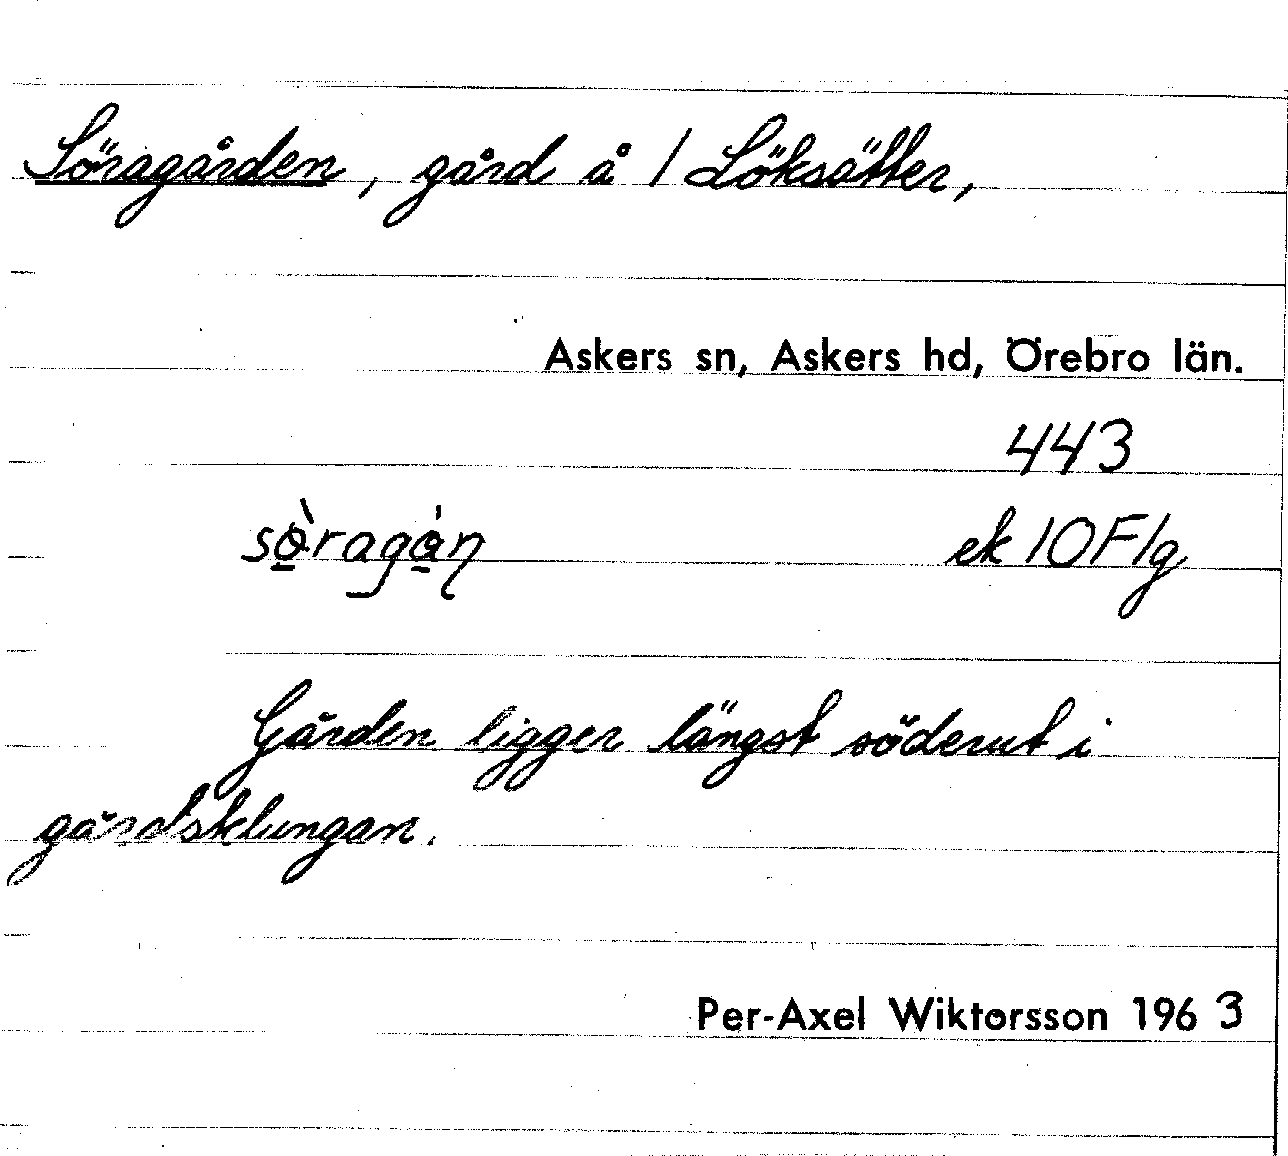 Söragården, gård å 1 Löksätter,
Askers sn, Askers hd, Örebro län.
443
ek 10F1g
Gården ligger längst söderut i
gårdsklungan.
Per-Axel Wiktorsson 1963